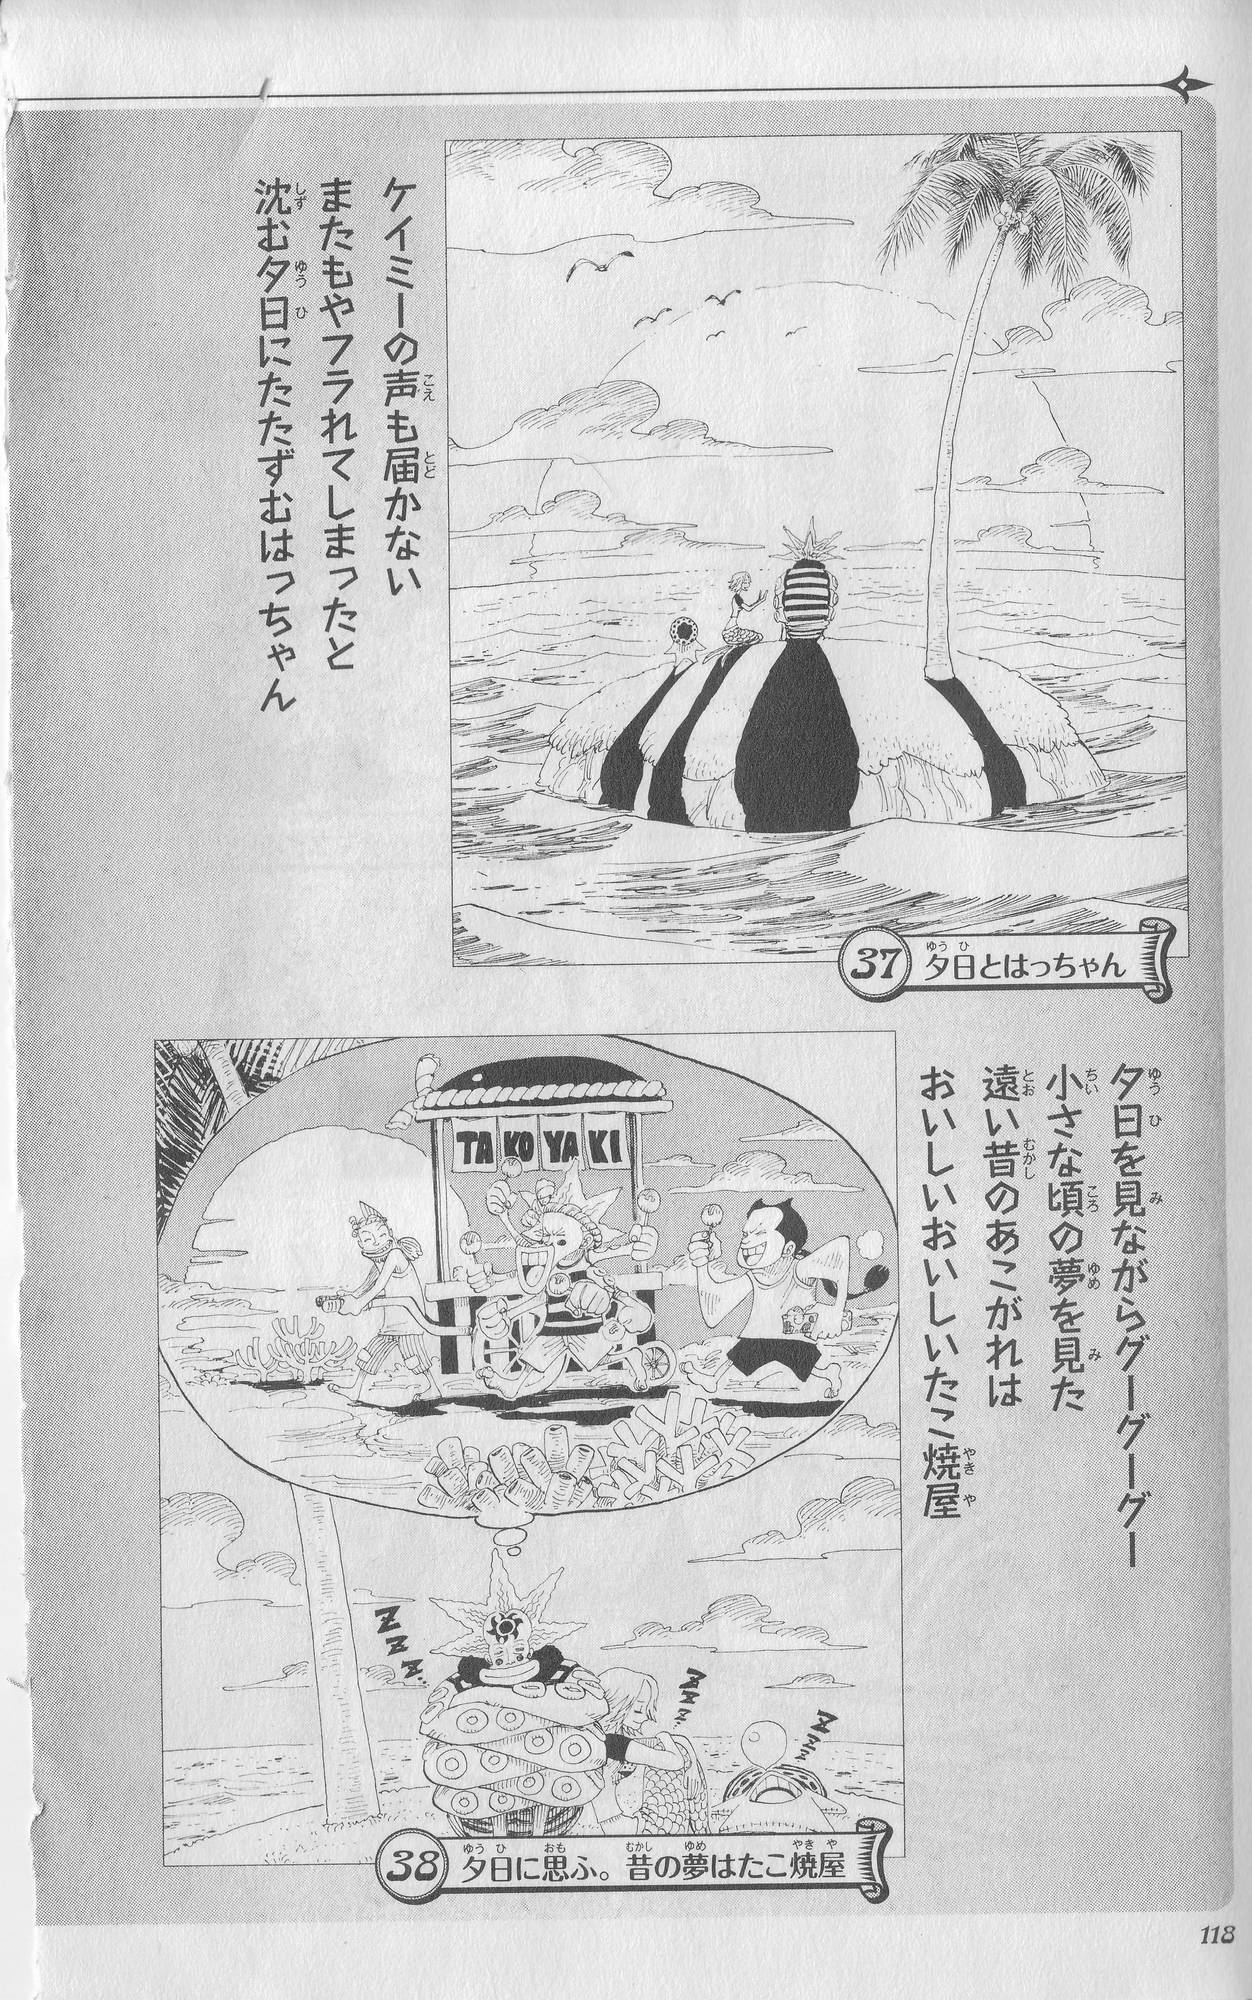 ケイミーの声も届かない
またもやフラれてしまったと
沈む夕日にたたずむはっちゃん
37 夕日とはっちゃん
夕日を見ながらグーグーグー
小さな頃の夢を見た
遠い昔のあこがれは
おいしいおいしいたこ焼屋
TAKOYAKI
ZZZZ...
ZZZZ...
ZZZZ...
38 夕日に思ふ。昔の夢はたこ焼屋
118